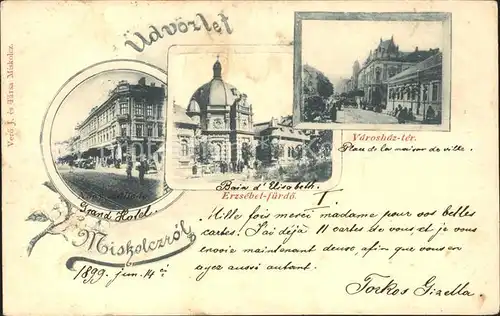 Üdvözlet
Városház-tér.
Plan de la maison de ville.
Bain d'Elisabeth.
Erzsébet-fürdő.
Grand Hotel.
Miskolczról
1899. jun. 14én
I.
Mille fois merci madame pour vos belles
cartes. J'ai déjà 11 cartes de vous, et je vous
envoie maintenant deuse, afin que vous en
ayez aussi autant.
Torkos Gizella.
Veró J. és Társa Miskolcz.